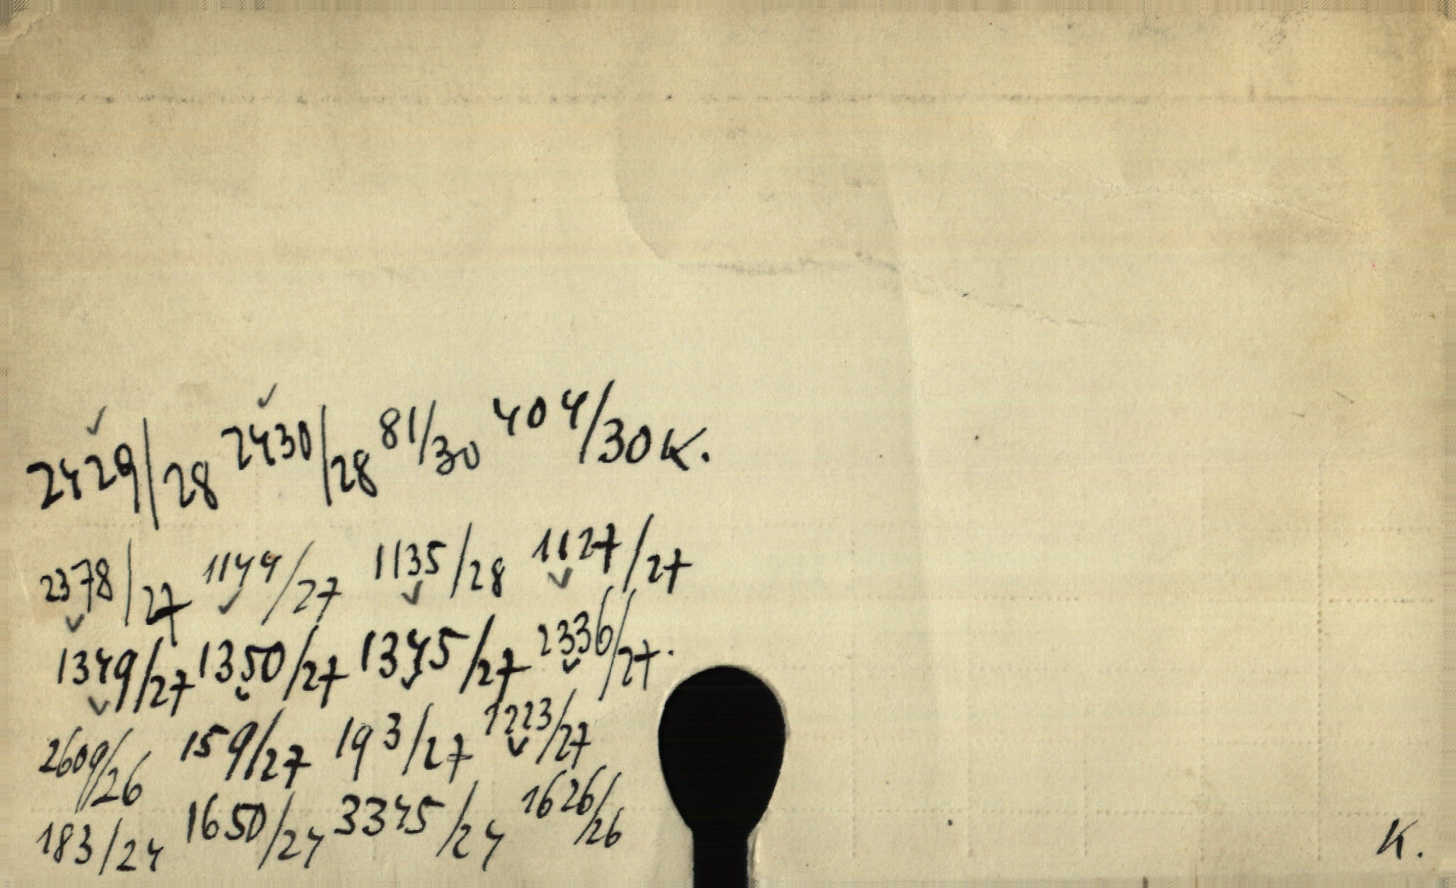 2429/28 2430/28 81/30 404/30 K.
2378/27 1144/27 1135/28 1127/27
1349/27 1350/27 1345/27 2336/27.
2609/26 159/27 193/27 1223/27
183/24 1650/24 3345/24 1626/26
K.